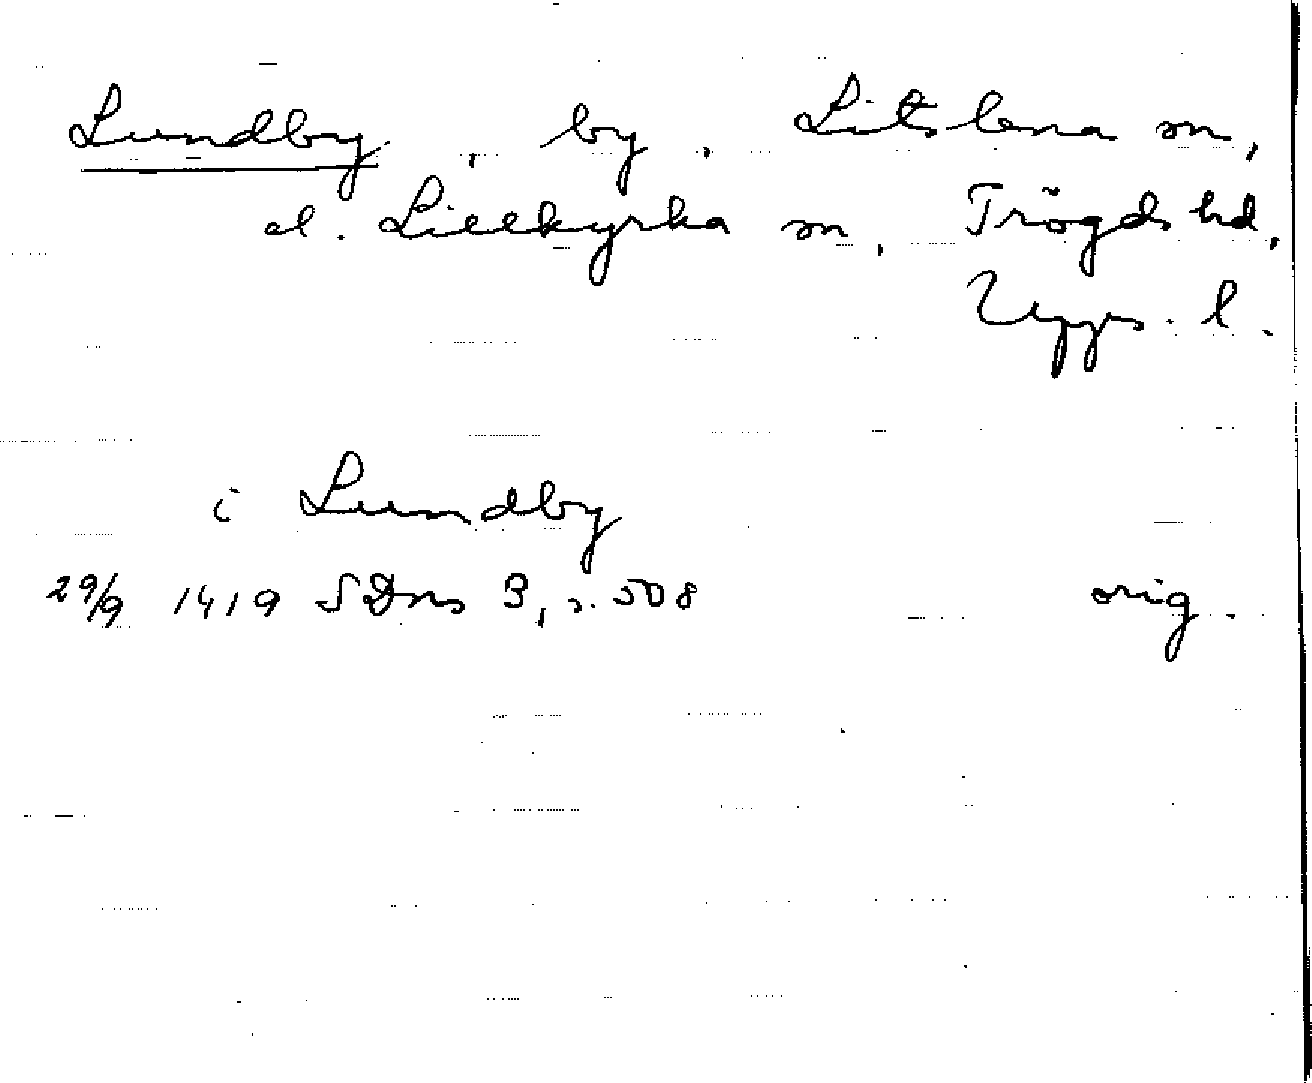 Lundby, by, Litslena sn,
el. Lillkyrka sn, Trögds hd,
Upps. l.
i Lundby
29/9 1419 SDns 3, s. 508 orig.